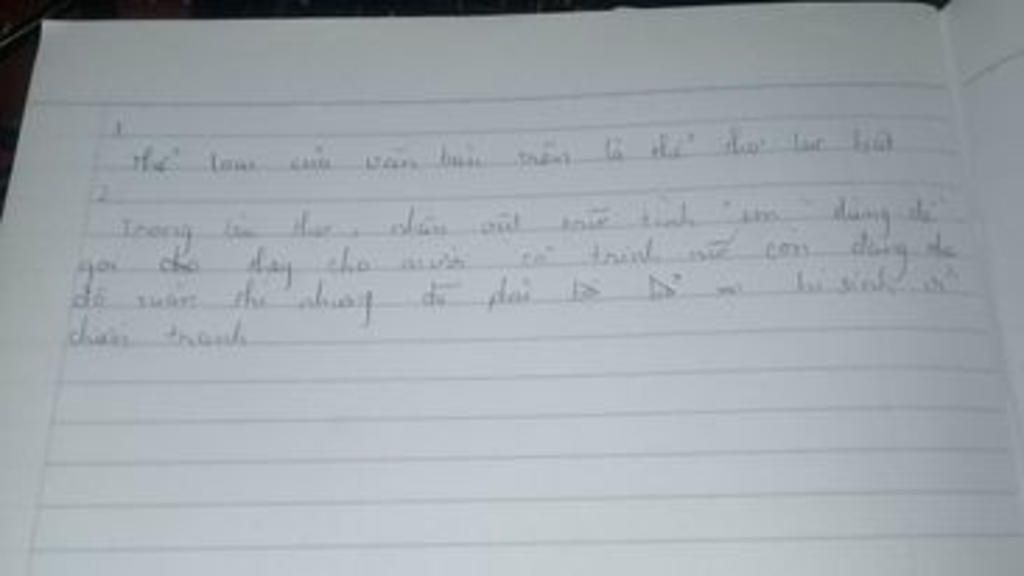 1
thể loại của văn bản trên là thể thơ lục bát
2
Trong bài thơ, nhân vật trữ tình "em" dùng để
gọi thay cho người trinh nữ còn đang
độ xuân thì nhưng đã phải hi sinh vì
chiến tranh